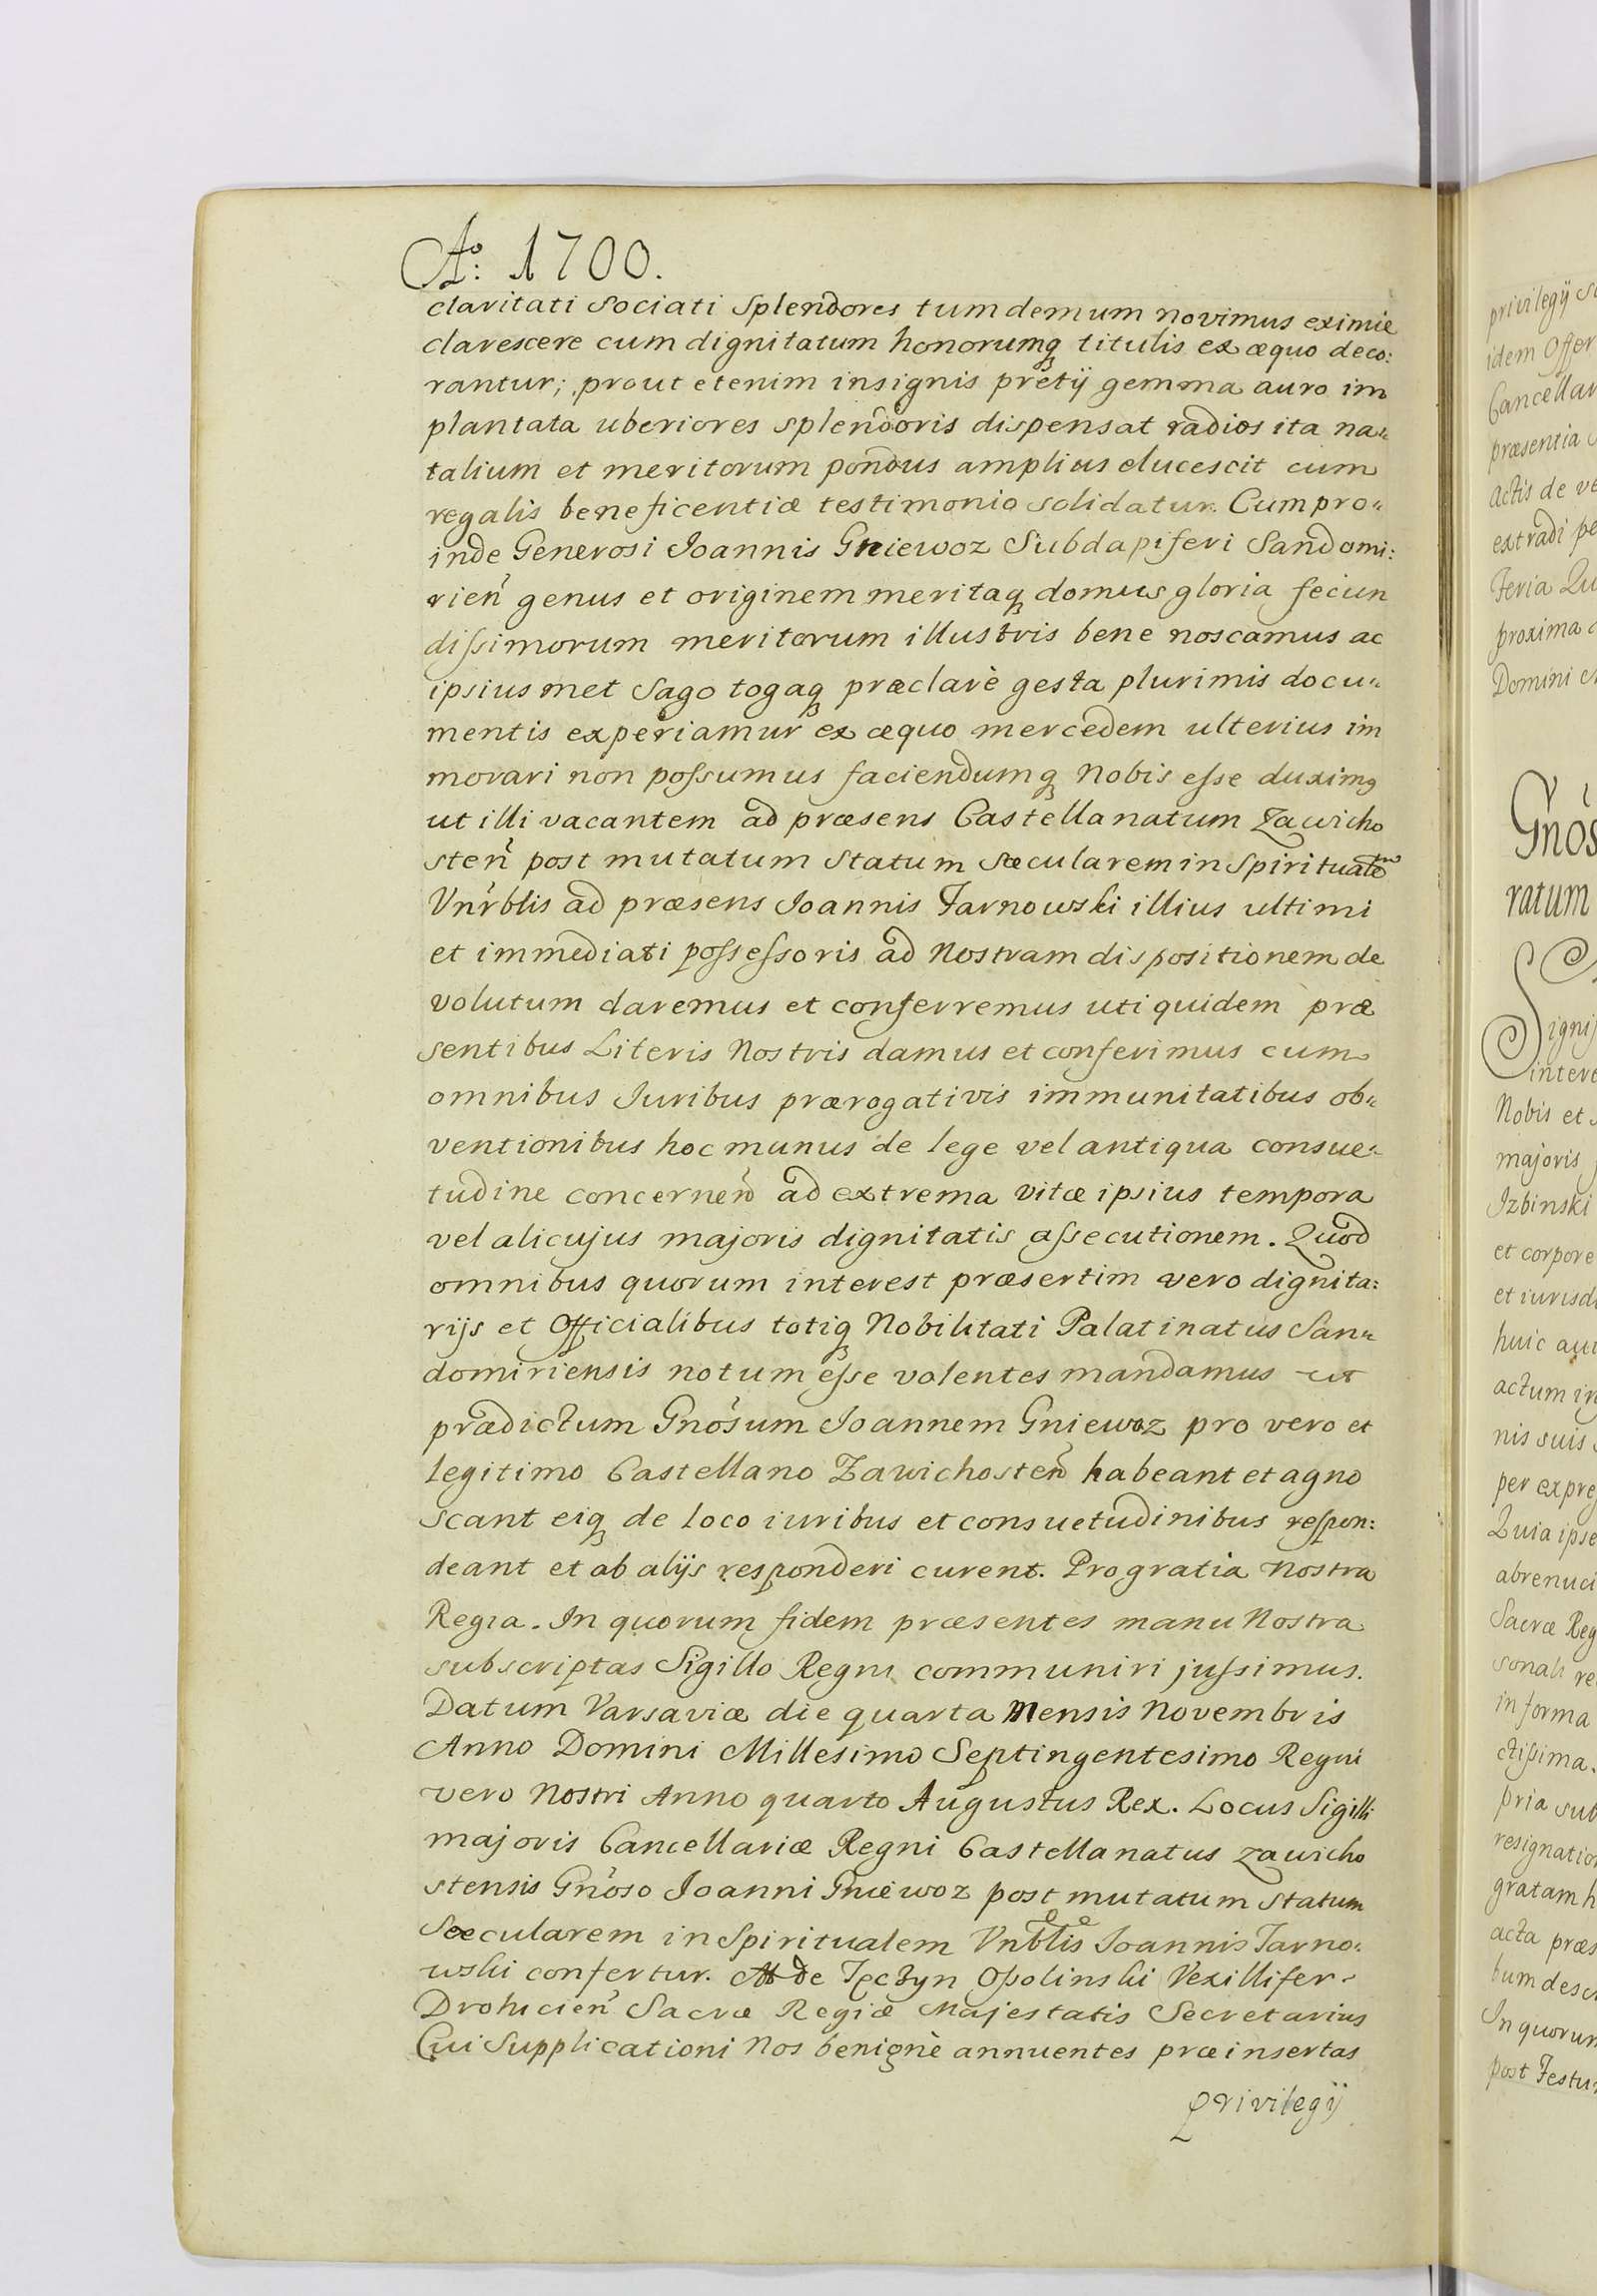 Aº: 1700.
claritati sociati splendores tum demum novimus eximie
clarescere cum dignitatum honorumq̃ titulis ex æquo deco:
rantur; prout etenim insignis pretij gemma auro im
plantata uberiores splendoris dispensat radios ita na„
talium et meritorum pondus amplius elucescit cum
regalis beneficentiæ testimonio solidatur. Cum pro„
inde Generosi Ioannis Gniewoz Subdapiferi Sandomi:
rień genus et originem meritaq̃ domus gloria fecun
dissimorum meritorum illustris bene noscamus ac
ipsiusmet Sago togaq̃ præclarè gesta plurimis docu„
mentis experiamur ex æquo mercedem ulterius im
morari non possumus faciendumq̃ Nobis esse duximꝰ
ut illi vacantem ad præsens Castellanatum Zawicho
steń post mutatum Statum Sæcularem in Spiritualẽm
Vnrblis ad præsens Ioannis Tarnowski illius ultimi
et immediati possessoris ad Nostram dispositionem de
volutum daremus et conferremus uti quidem præ
sentibus Literis Nostris damus et conferimus cum
omnibus Iuribus prærogativis immunitatibus ob„
ventionibus hoc munus de lege vel antiqua consue„
tudine concerneñ ad extrema vitæ ipsius tempora
vel alicujus majoris dignitatis assecutionem. Quod
omnibus quorum interest præsertim vero dignita:
rijs et Officialibus totiq̃ Nobilitati Palatinatus San„
domiriensis notum esse volentes mandamus ut
prædictum Gnõsum Ioannem Gniewoz pro vero et
legitimo Castellano Zawichosteñ habeant et agno
scant eiq̃ de loco iuribus et consuetudinibus respon:
deant et ab alijs responderi curent. Pro gratia Nostra
Regia. In quorum fidem præsentes manu Nostra
subscriptas Sigillo Regni communiri jussimus.
Datum Varsaviæ die quarta Mensis Novembris
Anno Domini Millesimo Septingentesimo Regni
vero Nostri Anno quarto Augustus Rex. Locus Sigilli
majoris Cancellariæ Regni Castellanatus Zawicho
stensis Gnõso Ioanni Gniewoz post mutatum Statum
Sæcularem in Spiritualem Vnblis Ioannis Tarno:
wski confertur. de Tęczyn Ossolinski Vexillifer
Drohicień Sacræ Regiæ Majestatis Secretarius
Cui Supplicationi Nos benignè annuentes præinsertas
privilegij
privilegij
idem Offer
Cancellar
præsentia
Actis de ve
extradi pe
Feria Qu
proxima
Domini
Gnõs
ratum
Signif
intere
Nobis et
majoris
Izbinski
et corpore
et iurisdi
huic
actum in
nis suis
per expre
Quia ipse
abrenuci
Sacræ Reg
sonali re
in forma
ctissima.
pria sub
resignation
gratam h
acta præs
bum descr
In quorum
post Festum